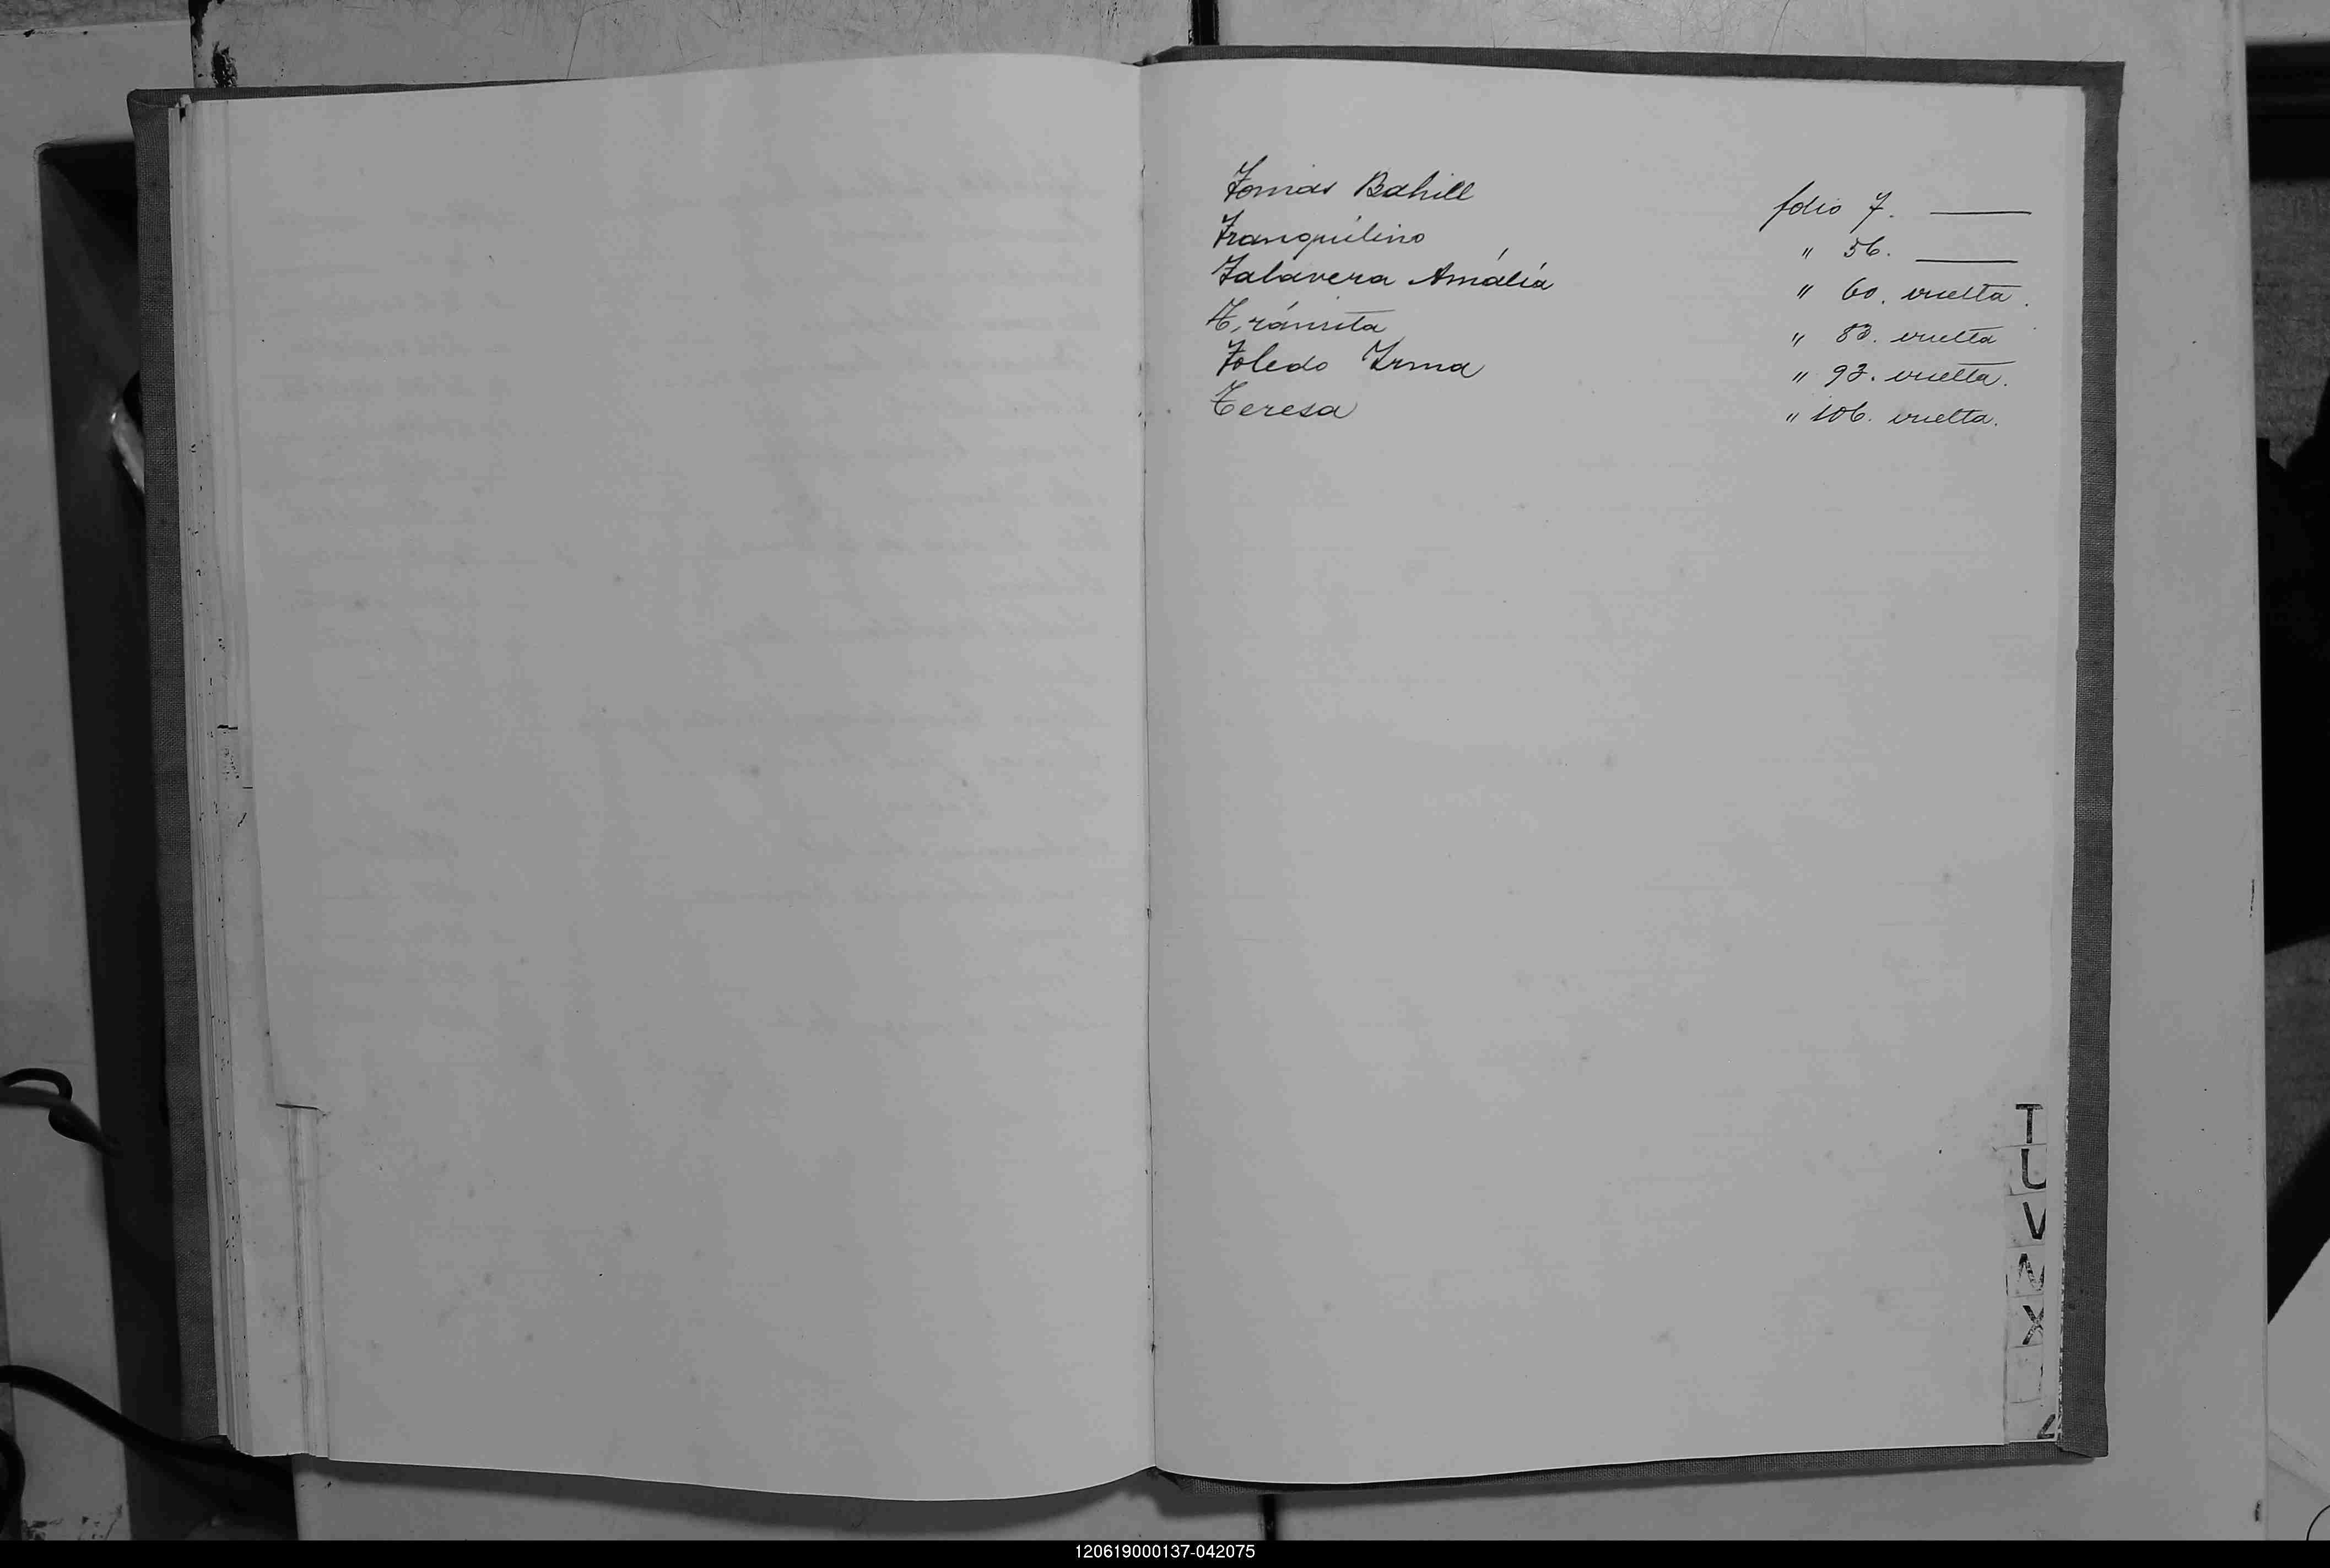 Tomás Bahill folio 7. ———
Tranquilino " 56. ———
Talavera Amália " 60. vuelta.
Tránsita " 83. vuelta
Toledo Irma " 93. vuelta.
Teresa " 106. vuelta.
T
U
V
X
Z
120619000137-042075